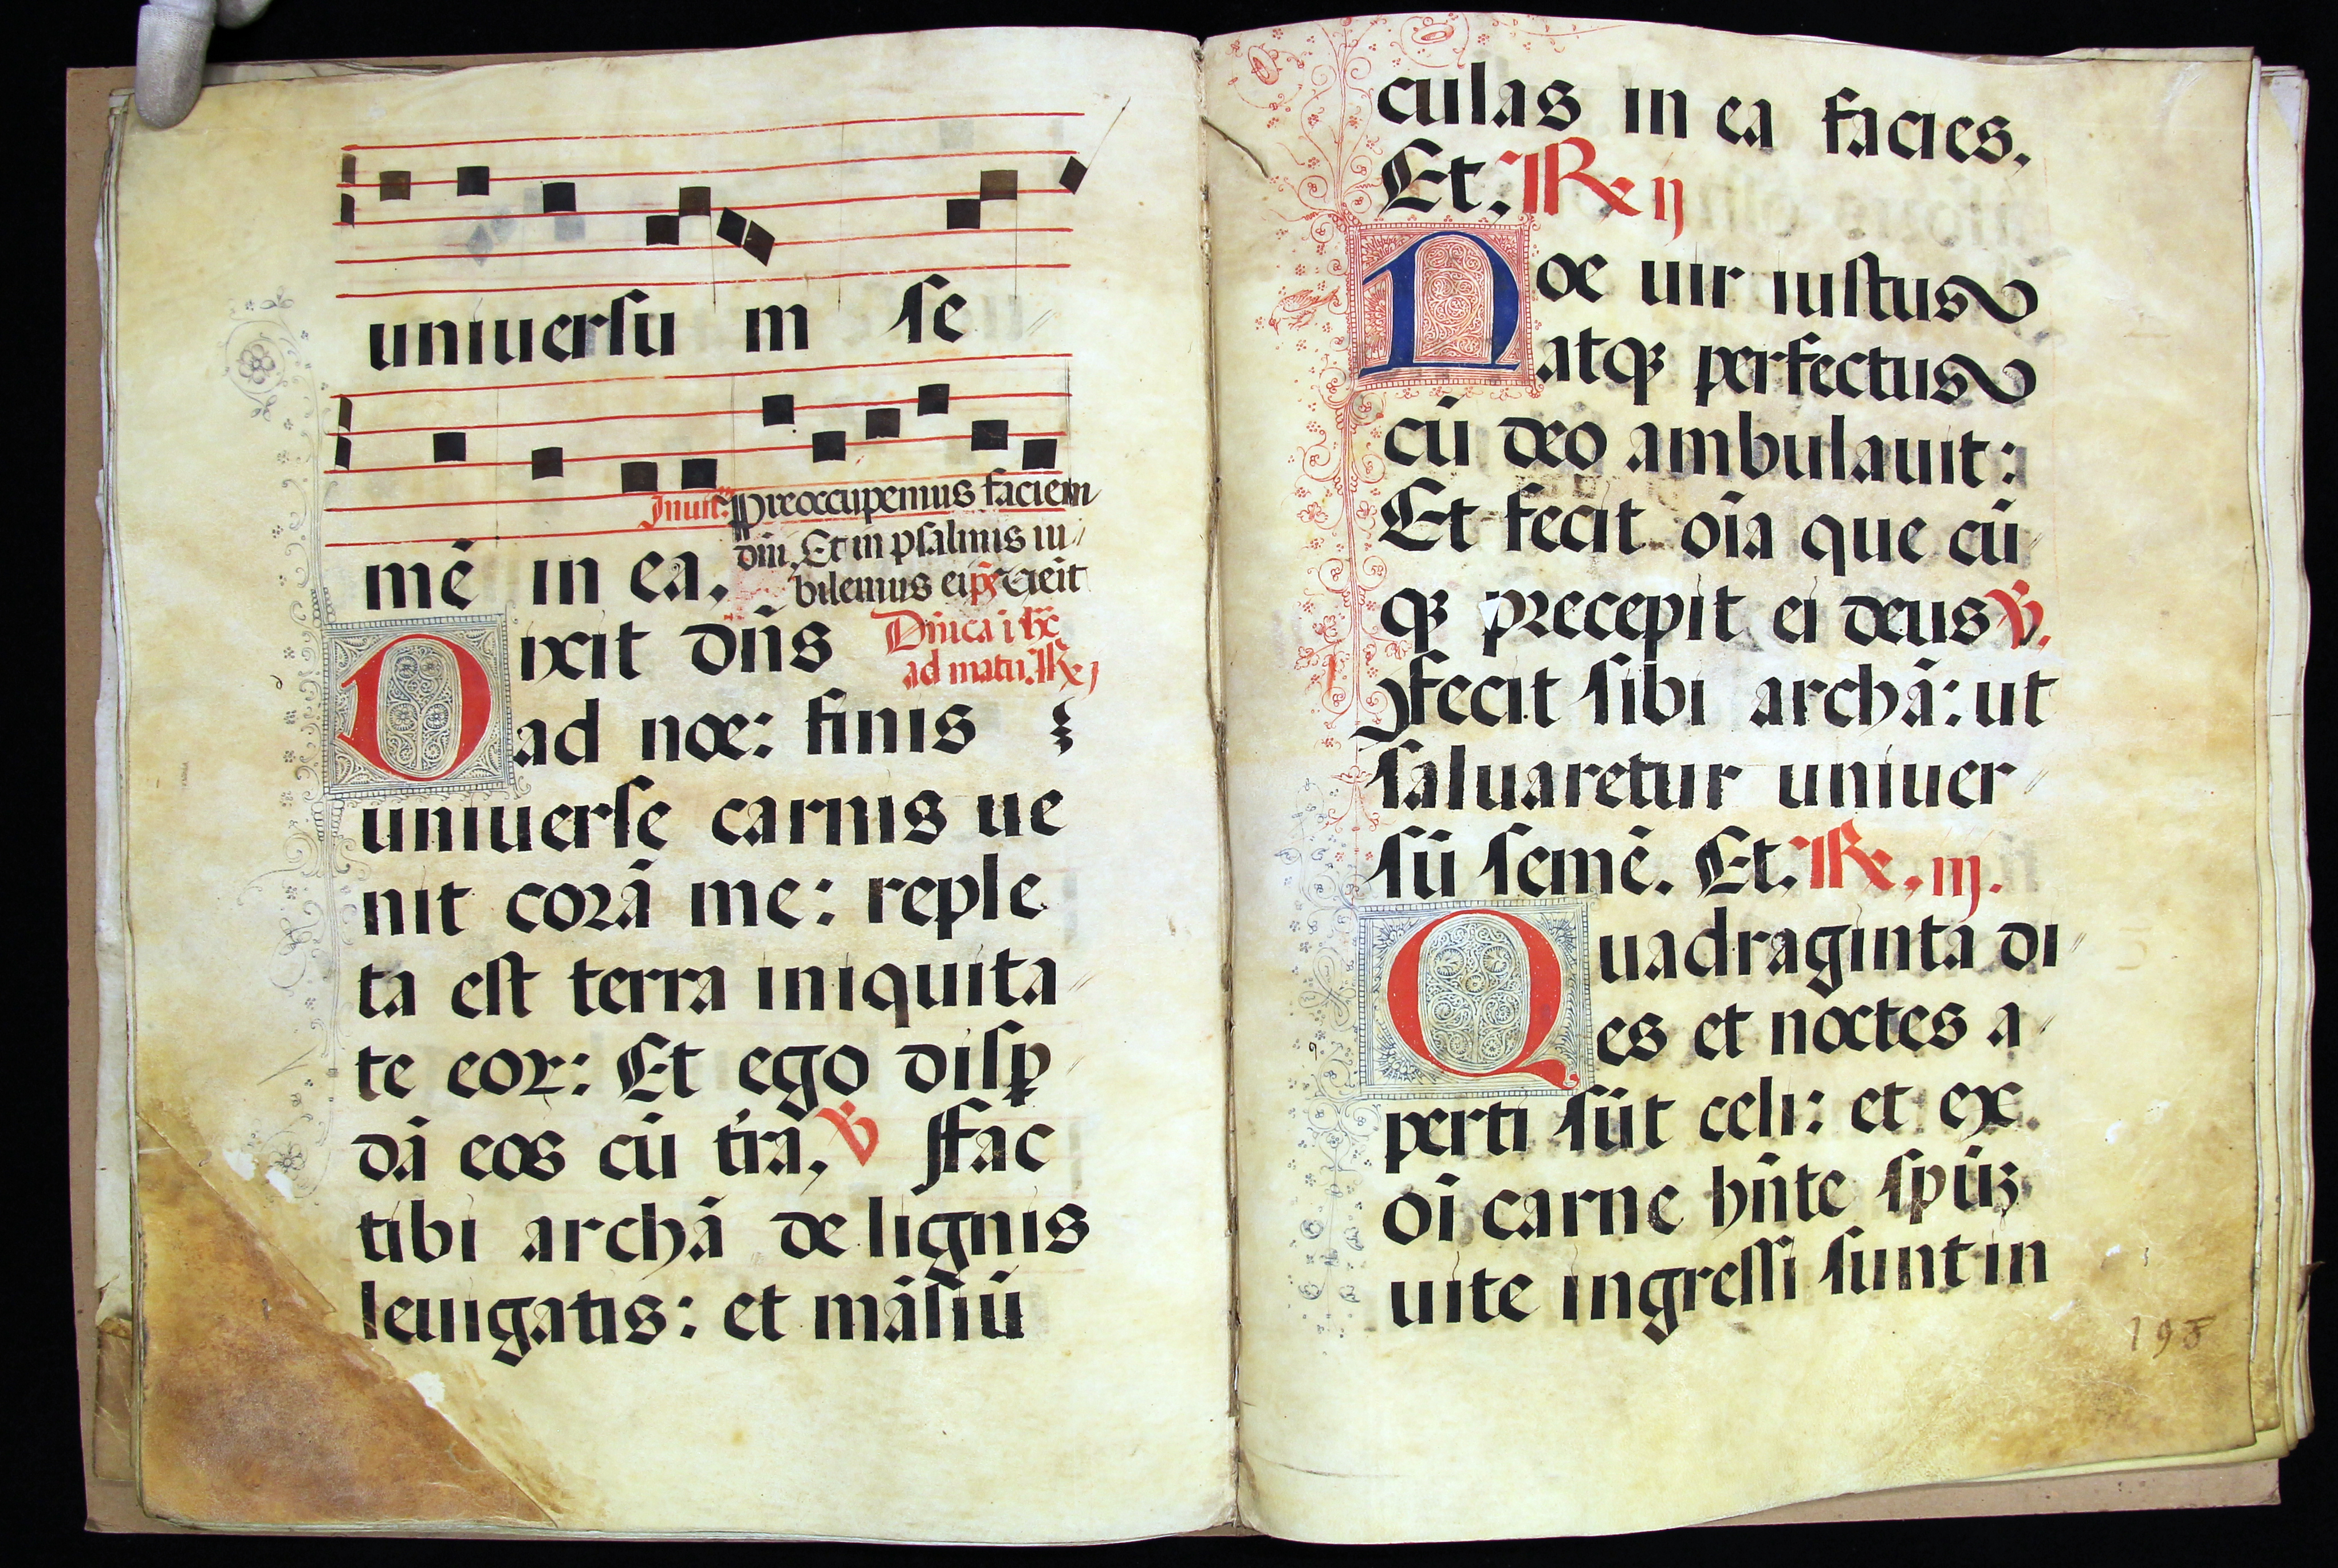 uniuersu m se
Inuit. Preoccupemus faciem
dn̄i. Et in psalmis iu
mē in ea.
bilemus ei
Dn̄ica i lx̄
ad matu. R̷ j
Dixit dn̄s
ad noe: finis
uniuerse carnis ue
nit corā me: reple
ta est terra iniquita
te eoꝝ: Et ego disꝑ
dā eos cū tr̄a, ℣ Ffac
tibi archā de lignis
leuigatis: et māsiū
culas in ea facies.
Et. ℟ ij
Noe uir iustus
atqꝫ perfectus
cū deo ambulauit:
Et fecit oīa que cū
qꝫ precepit ei deus ℣.
Ffecit sibi archā: ut
saluaretur uniuer
sū semē. Et. ℟. iij.
Quadraginta di
es et noctes a
perti sūt celi: et ex
oī carne hn̄te spūꝫ
uite ingressi sunt in
195